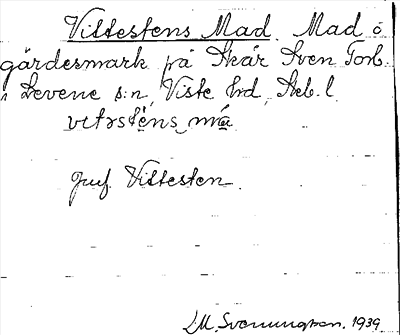 Vittestens Mad. Mad o
gärdesmark på Skår Sven Torb.
i Levene s:n, Viste hrd, Skb. l.
vitəstens ma
Jmf Vittesten.
LM. Svenungsson. 1939